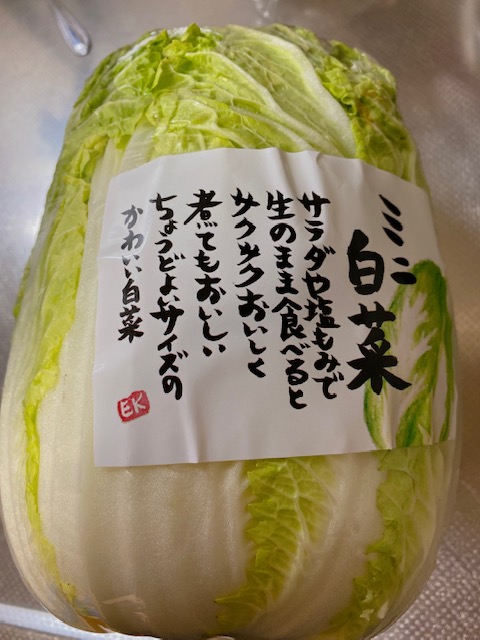 ミニ
白菜
サラダや塩もみで
生のまま食べると
サクサクおいしく
煮てもおいしい
ちょうどよいサイズの
かわいい白菜
EK